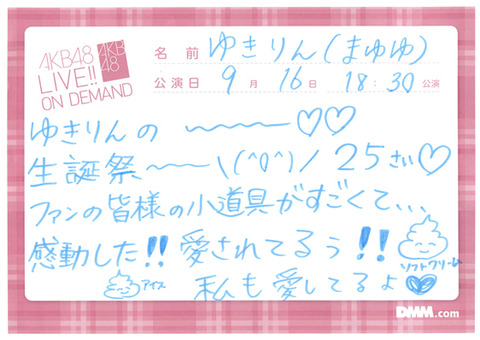 AKB48
LIVE!!
ON DEMAND
AKB
48
名前 ゆきりん(まゆゆ)
公演日 9月 16日 18:30公演
ゆきりんの 〜〜〜♡♡
生誕祭〜〜\(^o^)/ 25さい♡
ファンの皆様の小道具がすごくて、、、
感動した!! 愛されてるぅ!!
ソフトクリーム
アイス 私も愛してるよ♥
DMM.com